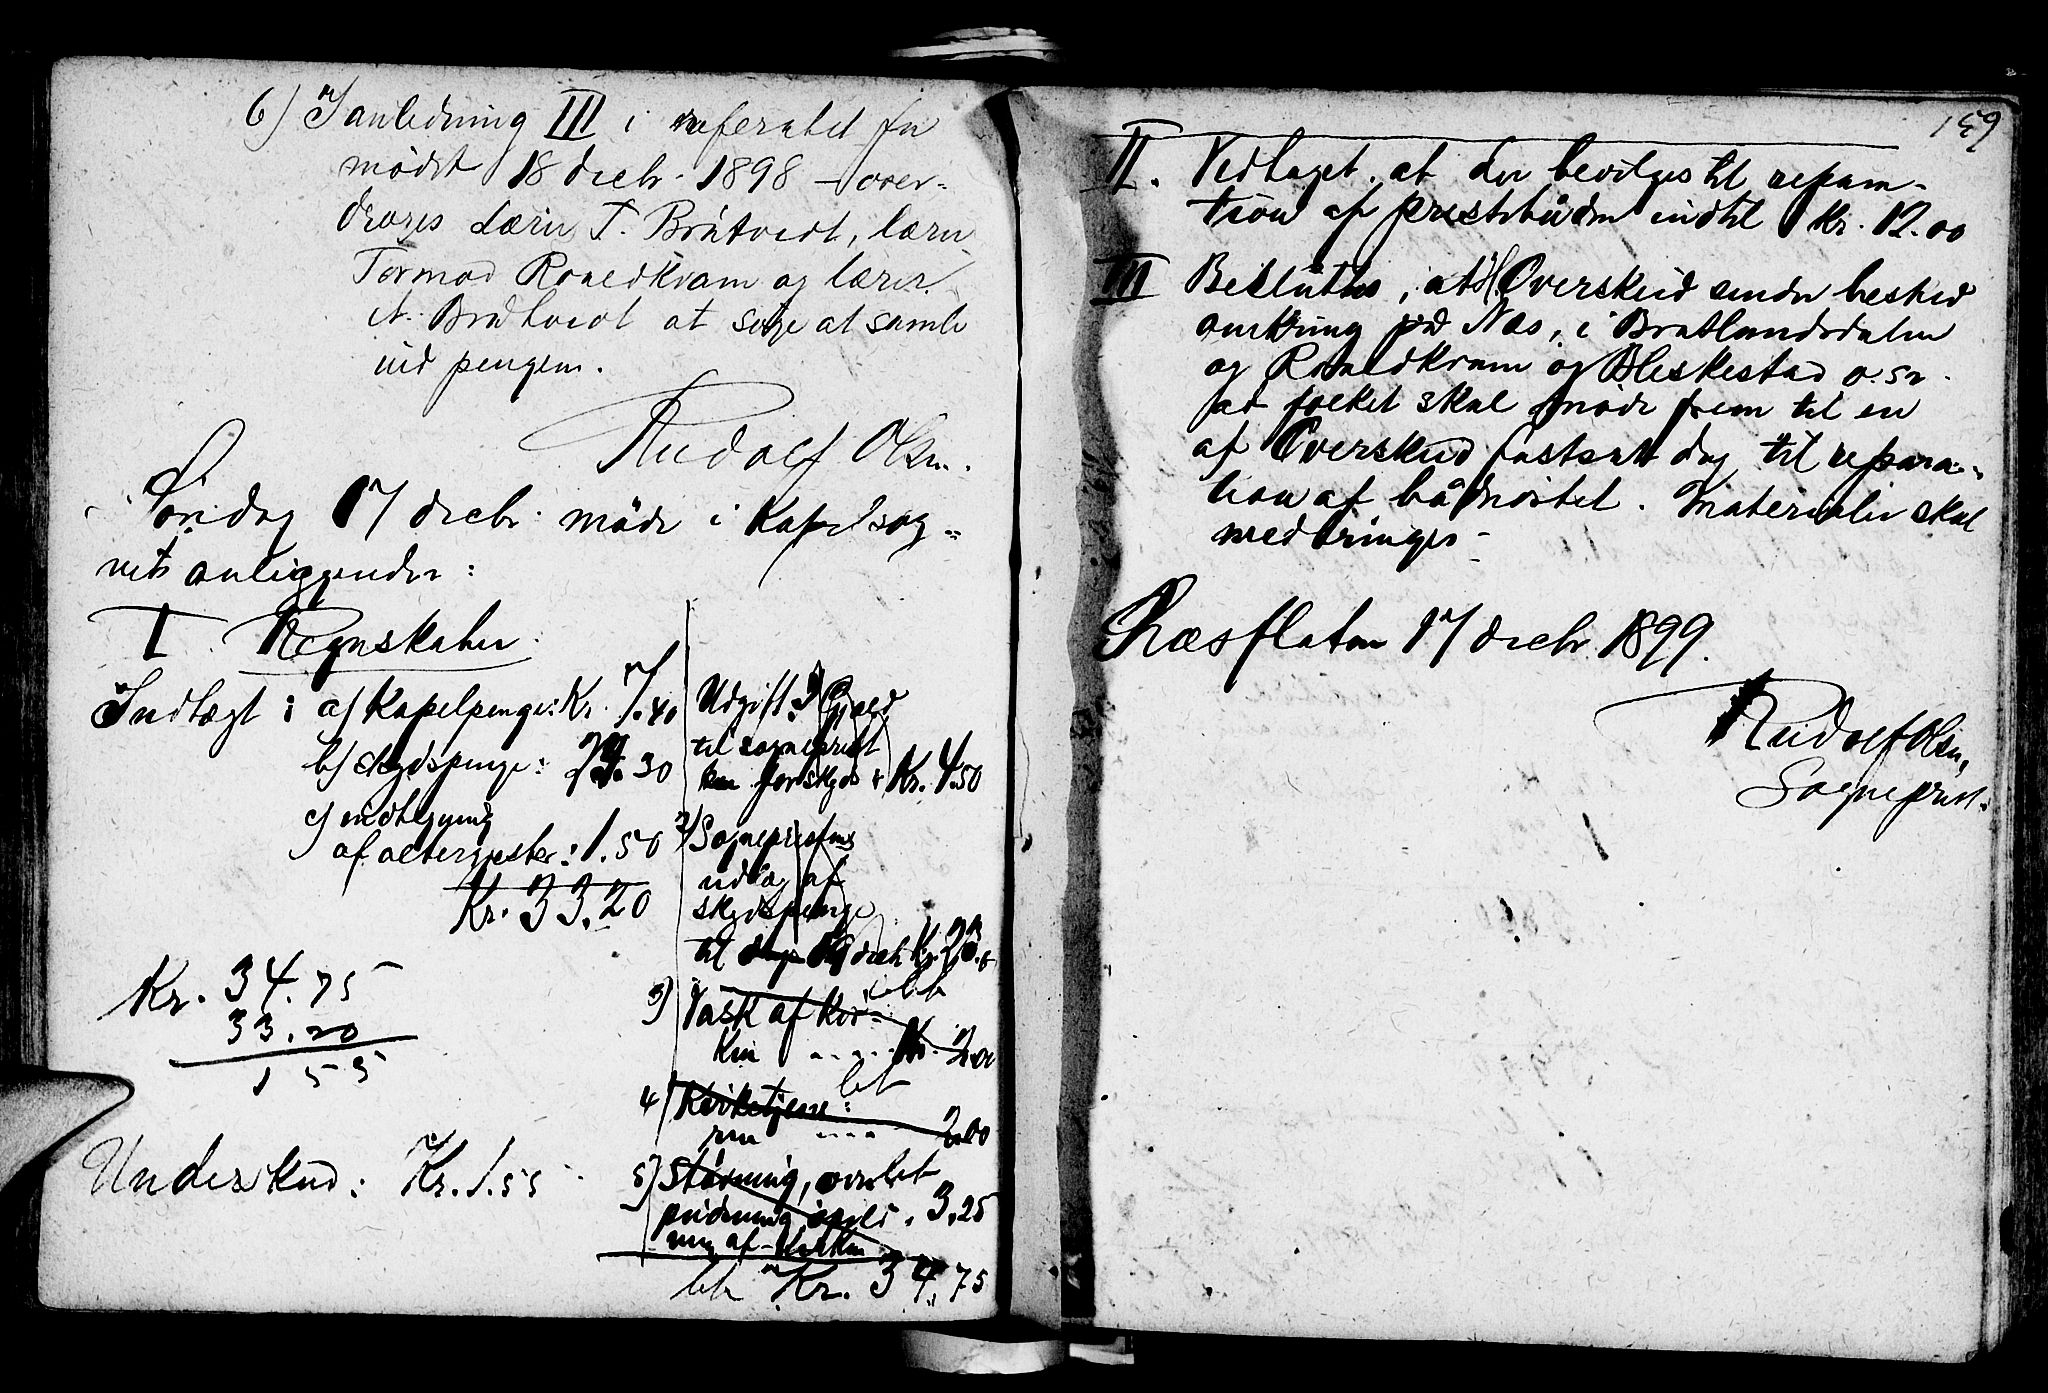 6) I anledning III i referatet fra
mødet 18 decbr. 1898 – over-
drages lærer T. Bråtveit, lærer
Tormod Roaldkvam og lærer
A. Bråtveit at søge at samle
ind pengene.
Rudolf Olsen.
Søndag 17 decbr. møde i kapelsog-
nets anliggender:
I Regnskaber.
Indtægt: a) Kapelpenge: Kr. 7.40
b) skydspenge: 30
c) indtegning
af altergjester: 1.50
Kr. 33.20
Kr. 34.75
33.20
1 55
Underskud: Kr. 1.55
Udgift:
til sogneprest
for skyds Kr. 4.50
2) Sogneprestens
udlæg af
skydspenge
til decbr Kr. 23.
bet
3) Vask af kir-
ken .... Kr. 2.00
bet
4) Kirketjene-
ren .... 2.00
5) bet
3.25
af kirken
bet Kr. 34.75
159
II. Vedtaget, at der bevilges til repara-
tion af prestebåden indtil Kr. 12.00
III Besluttes, at H. Overskeid sender besked
omkring på Næs, i Bratlandsdalen
og Roaldkvam og Bleskestad o.sv.
at folket skal møde frem til en
af Overskeid fastsatt dag til repara-
tion af bådnøstet. Materialer skal
medbringes –
Næsflaten 17 decbr. 1899.
Rudolf Olsen,
Sogneprest.